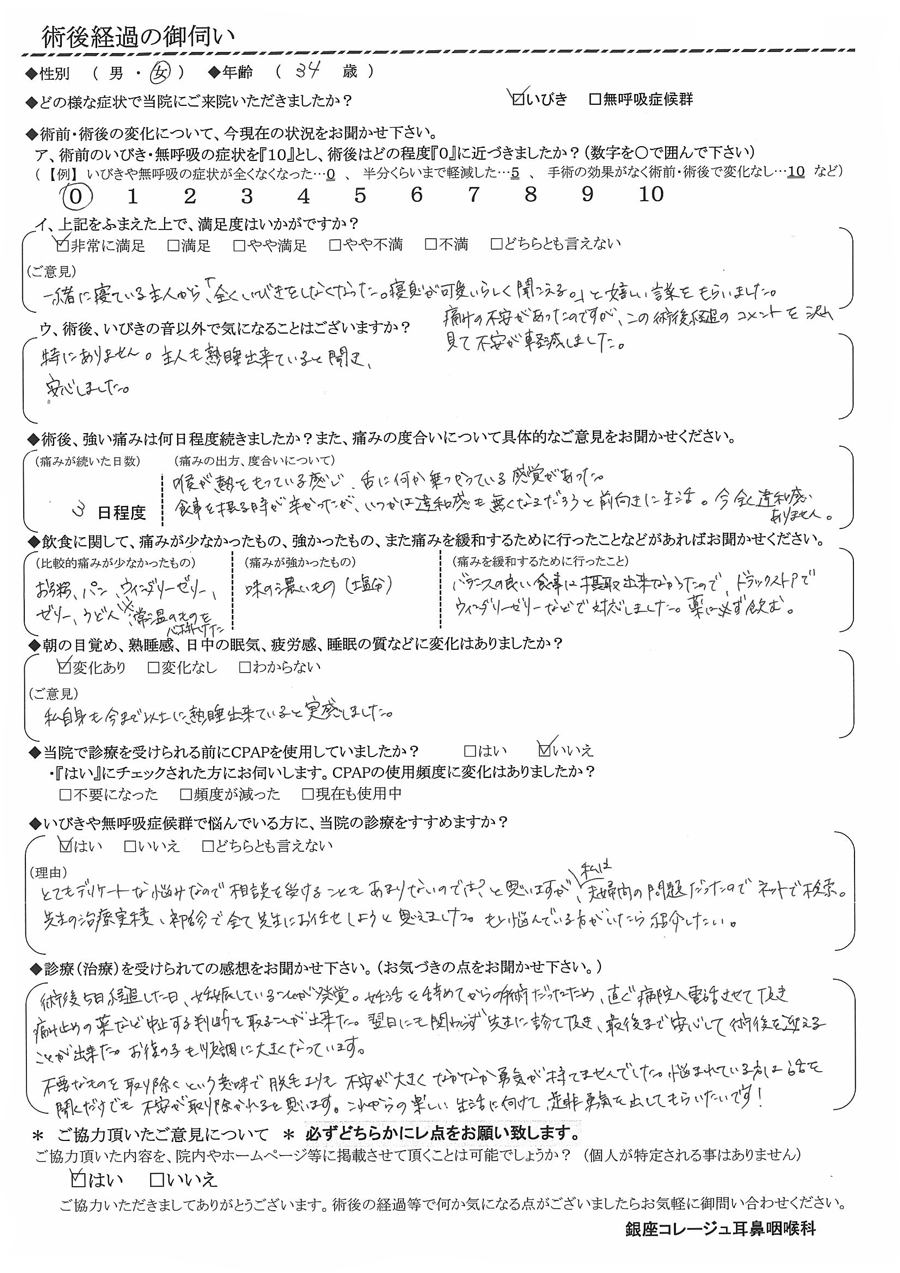 術後経過の御伺い
◆性別 (男・女) ◆年齢 (34 歳)
◆どの様な症状で当院にご来院いただきましたか? ☑いびき □無呼吸症候群
◆術前・術後の変化について、今現在の状況をお聞かせ下さい。
ア、術前のいびき・無呼吸の症状を『10』とし、術後はどの程度『0』に近づきましたか?(数字を○で囲んで下さい)
(【例】いびきや無呼吸の症状が全くなくなった…0 、 半分くらいまで軽減した…5 、 手術の効果がなく術前・術後で変化なし…10 など)
0 1 2 3 4 5 6 7 8 9 10
イ、上記をふまえた上で、満足度はいかがですか?
☑非常に満足 □満足 □やや満足 □やや不満 □不満 □どちらとも言えない
(ご意見)
一緒に寝ている主人から、「全くいびきをしなくなった。寝息が可愛いらしく聞こえる。」と嬉しい言葉をもらいました。
痛みの不安があったのですが、この術後経過のコメントを沢山
見て不安が軽減しました。
ウ、術後、いびきの音以外で気になることはございますか?
特にありません。主人も熟睡出来ていると聞き、
安心しました。
◆術後、強い痛みは何日程度続きましたか?また、痛みの度合いについて具体的なご意見をお聞かせください。
(痛みが続いた日数) (痛みの出方、度合いについて)
喉が熱をもっている感じ、舌に何か乗っかっている感覚があった。
食事を摂る時が辛かったが、いつかは違和感も無くなるだろうと前向きに生活。今全く違和感
ありません。
3 日程度
◆飲食に関して、痛みが少なかったもの、強かったもの、また痛みを緩和するために行ったことなどがあればお聞かせください。
(比較的痛みが少なかったもの) (痛みが強かったもの) (痛みを緩和するために行ったこと)
お粥、パン、ウィンダーゼリー、
ゼリー、うどん ※常温のものを
心掛けた
味の濃いもの(塩分)
バランスの良い食事は摂取出来なかったので、ドラックストアで
ウィンダーゼリーなどで対応しました。薬は必ず飲む。
◆朝の目覚め、熟睡感、日中の眠気、疲労感、睡眠の質などに変化はありましたか?
☑変化あり □変化なし □わからない
(ご意見)
私自身も今まで以上に熟睡出来ていると実感しました。
◆当院で診療を受けられる前にCPAPを使用していましたか? □はい ☑いいえ
・『はい』にチェックされた方にお伺いします。CPAPの使用頻度に変化はありましたか?
□不要になった □頻度が減った □現在も使用中
◆いびきや無呼吸症候群で悩んでいる方に、当院の診療をすすめますか?
☑はい □いいえ □どちらとも言えない
(理由)
とてもデリケートな悩みなので相談を受けることもあまりないのでは?と思いますが、私は夫婦間の問題だったのでネットで検索。
先生の治療実積、初診で全て先生にお任せしようと思えました。もし悩んでいる方がいたら紹介したい。
◆診療(治療)を受けられての感想をお聞かせ下さい。(お気づきの点をお聞かせ下さい。)
術後5日経過した日、妊娠していることが発覚。妊活を諦めてからの手術だったため、直ぐ病院へ電話させて頂き
痛み止めの薬など中止する判断を取ることが出来た。翌日にも関わらず先生に診て頂き、最後まで安心して術後を迎える
ことが出来た。お腹の子も順調に大きくなっています。
不要なものを取り除くという意味で脱毛よりも不安が大きくなかなか勇気が持てませんでした。悩まれている方は話を
聞くだけでも不安が取り除かれると思います。これからの楽しい生活に向けて、是非勇気を出してもらいたいです!
* ご協力頂いたご意見について * 必ずどちらかにレ点をお願い致します。
ご協力頂いた内容を、院内やホームページ等に掲載させて頂くことは可能でしょうか? (個人が特定される事はありません)
☑はい □いいえ
ご協力いただきましてありがとうございます。術後の経過等で何か気になる点がございましたらお気軽に御問い合わせください。
銀座コレージュ耳鼻咽喉科